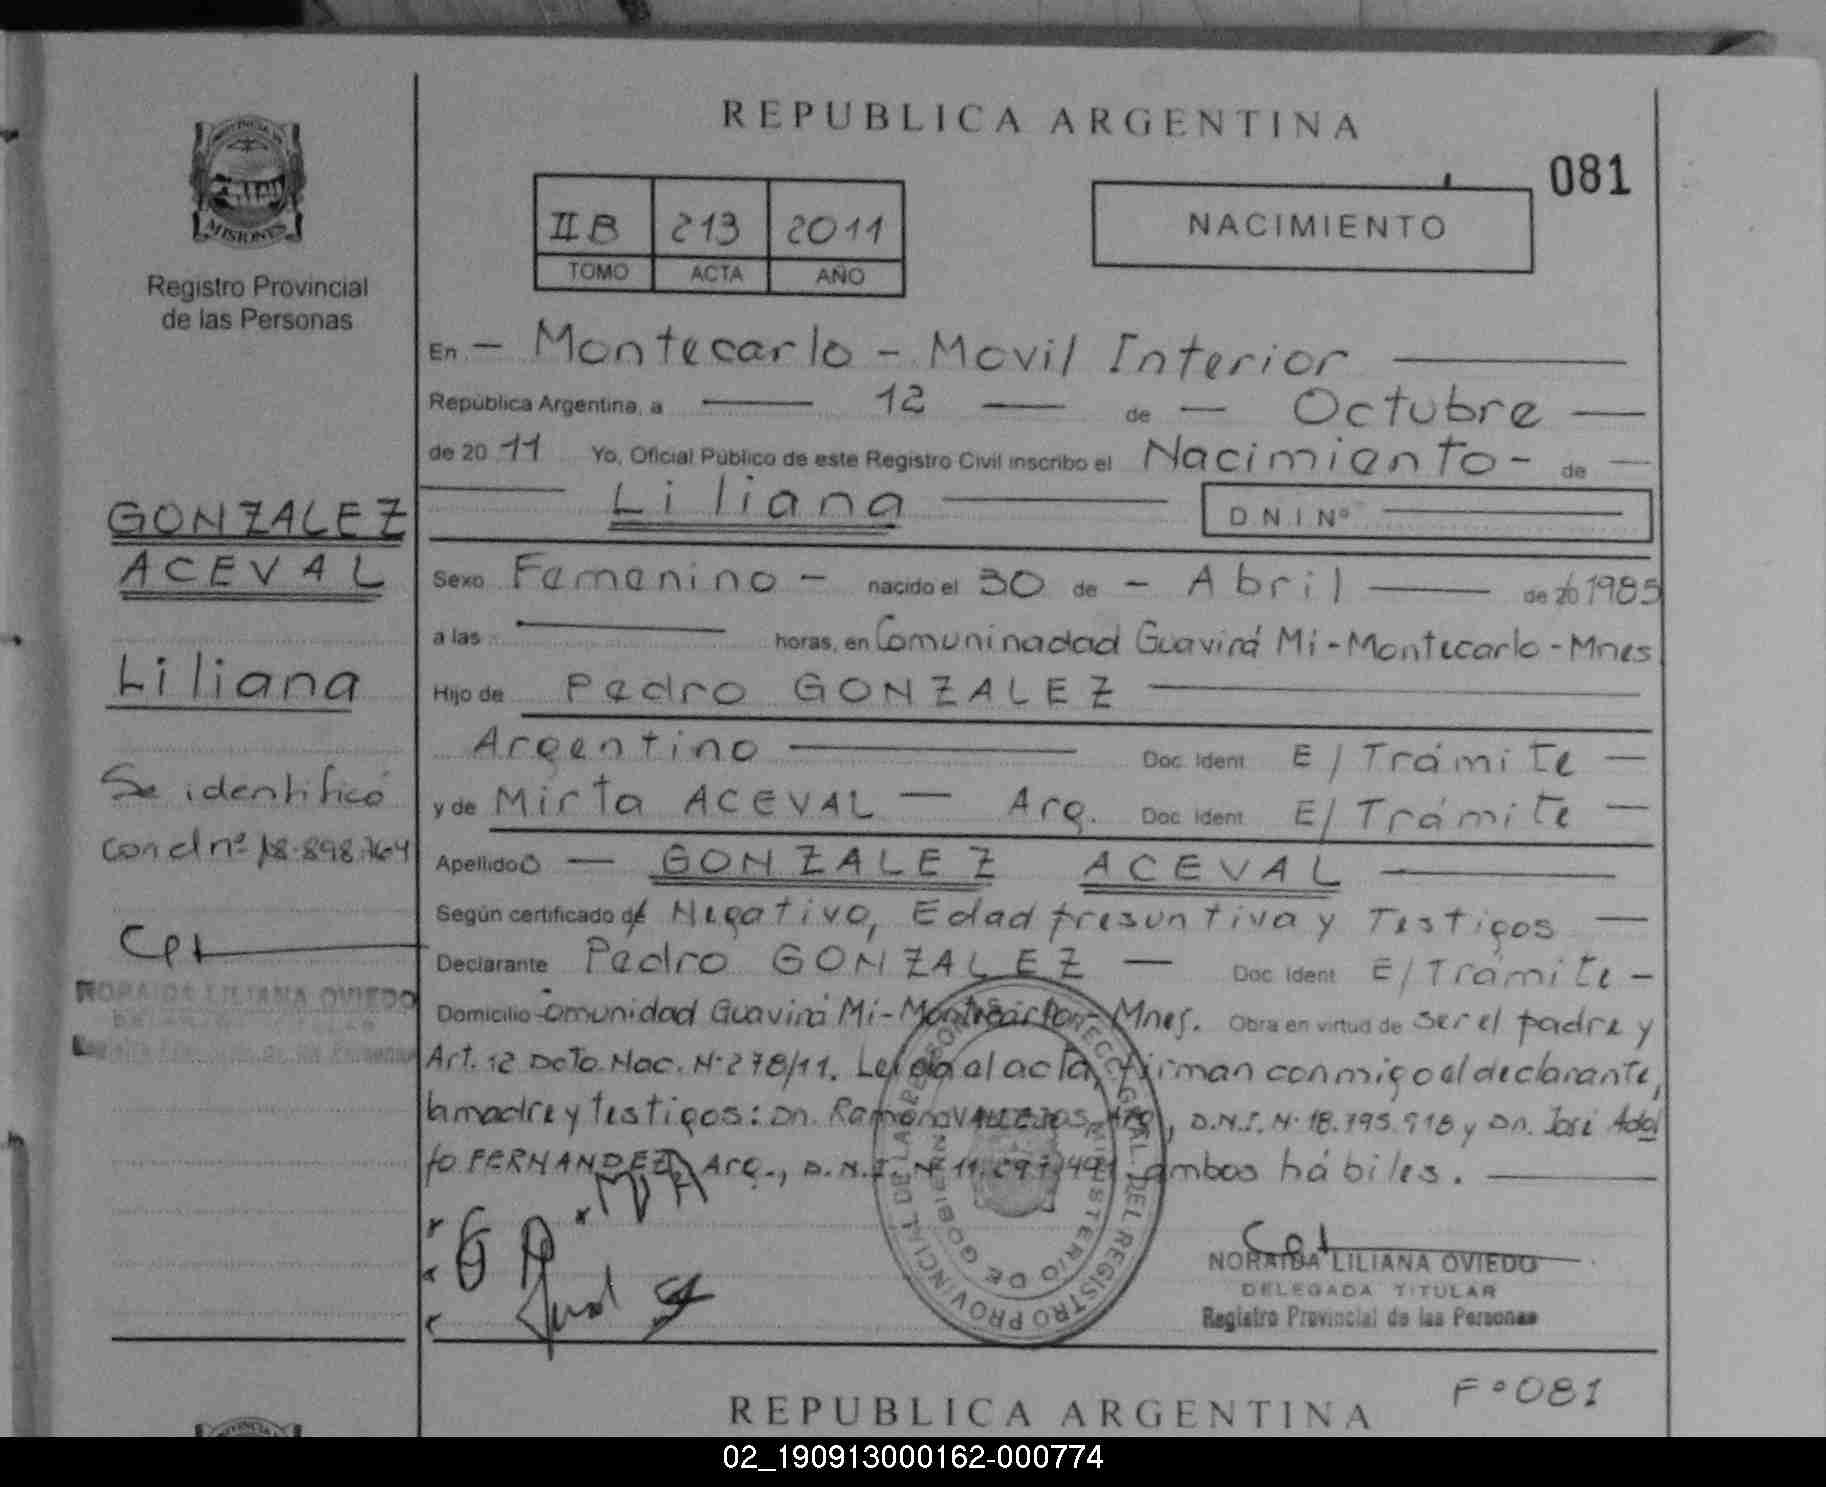 REPUBLICA ARGENTINA
081
PROVINCIA DE
MISIONES
Registro Provincial
de las Personas
IIB 213 2011
TOMO ACTA AÑO
NACIMIENTO
En - Montecarlo - Movil Interior
República Argentina, a 12 de - Octubre
de 2011 Yo, Oficial Público de este Registro Civil inscribo el Nacimiento - de
Liliana D N I Nº
GONZALEZ
ACEVAL
Liliana
Se identificó
con el nº 18.898.764
Cpt
NORAIDA LILIANA OVIEDO
Sexo Femenino - nacido el 30 de - Abril de 20 1985
a las horas, en Comuninadad Guavirá Mi - Montecarlo - Mnes
Hijo de Pedro GONZALEZ
Argentino Doc. Ident. E/Trámite
y de Mirta ACEVAL Arg. Doc. Ident. E/Trámite
Apellido GONZALEZ ACEVAL
Según certificado de Negativo, Edad presuntiva y Testigos
Declarante Pedro GONZALEZ Doc. Ident. E/Trámite -
Domicilio Comunidad Guavirá Mi - Montecarlo - Mnes. Obra en virtud de ser el padre y
Art. 12 Dcto. Nac. Nº 278/11. Leída el acta, firman conmigo el declarante,
la madre y testigos: Dn. Ramón VALLEJOS, Arg, D.N.I. Nº 18.795.918 y Dn. José Adol
fo FERNANDEZ, Arg., D.N.I. Nº ambos hábiles.
DIRECC. GRAL. DEL REGISTRO PROVINCIAL DE LAS PERSONAS
MINISTERIO DE GOBIERNO
Cpt
NORAIDA LILIANA OVIEDO
DELEGADA TITULAR
Registro Provincial de las Personas
Fº 081
REPUBLICA ARGENTINA
02_190913000162-000774